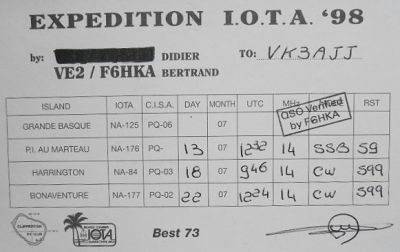 EXPEDITION I.O.T.A. '98
by: DIDIER TO: VK3AJJ
VE2 / F6HKA BERTRAND
ISLAND IOTA C.I.S.A. DAY MONTH UTC MHz RST
QSO Verified
by F6HKA
GRANDE BASQUE NA-125 PQ-06 07
P.I. AU MARTEAU NA-176 PQ- 13 07 1232 14 SSB 59
HARRINGTON NA-84 PQ-03 18 07 946 14 CW 599
BONAVENTURE NA-177 PQ-02 22 07 1224 14 CW 599
CLIPPERTON
IOTA
Best 73